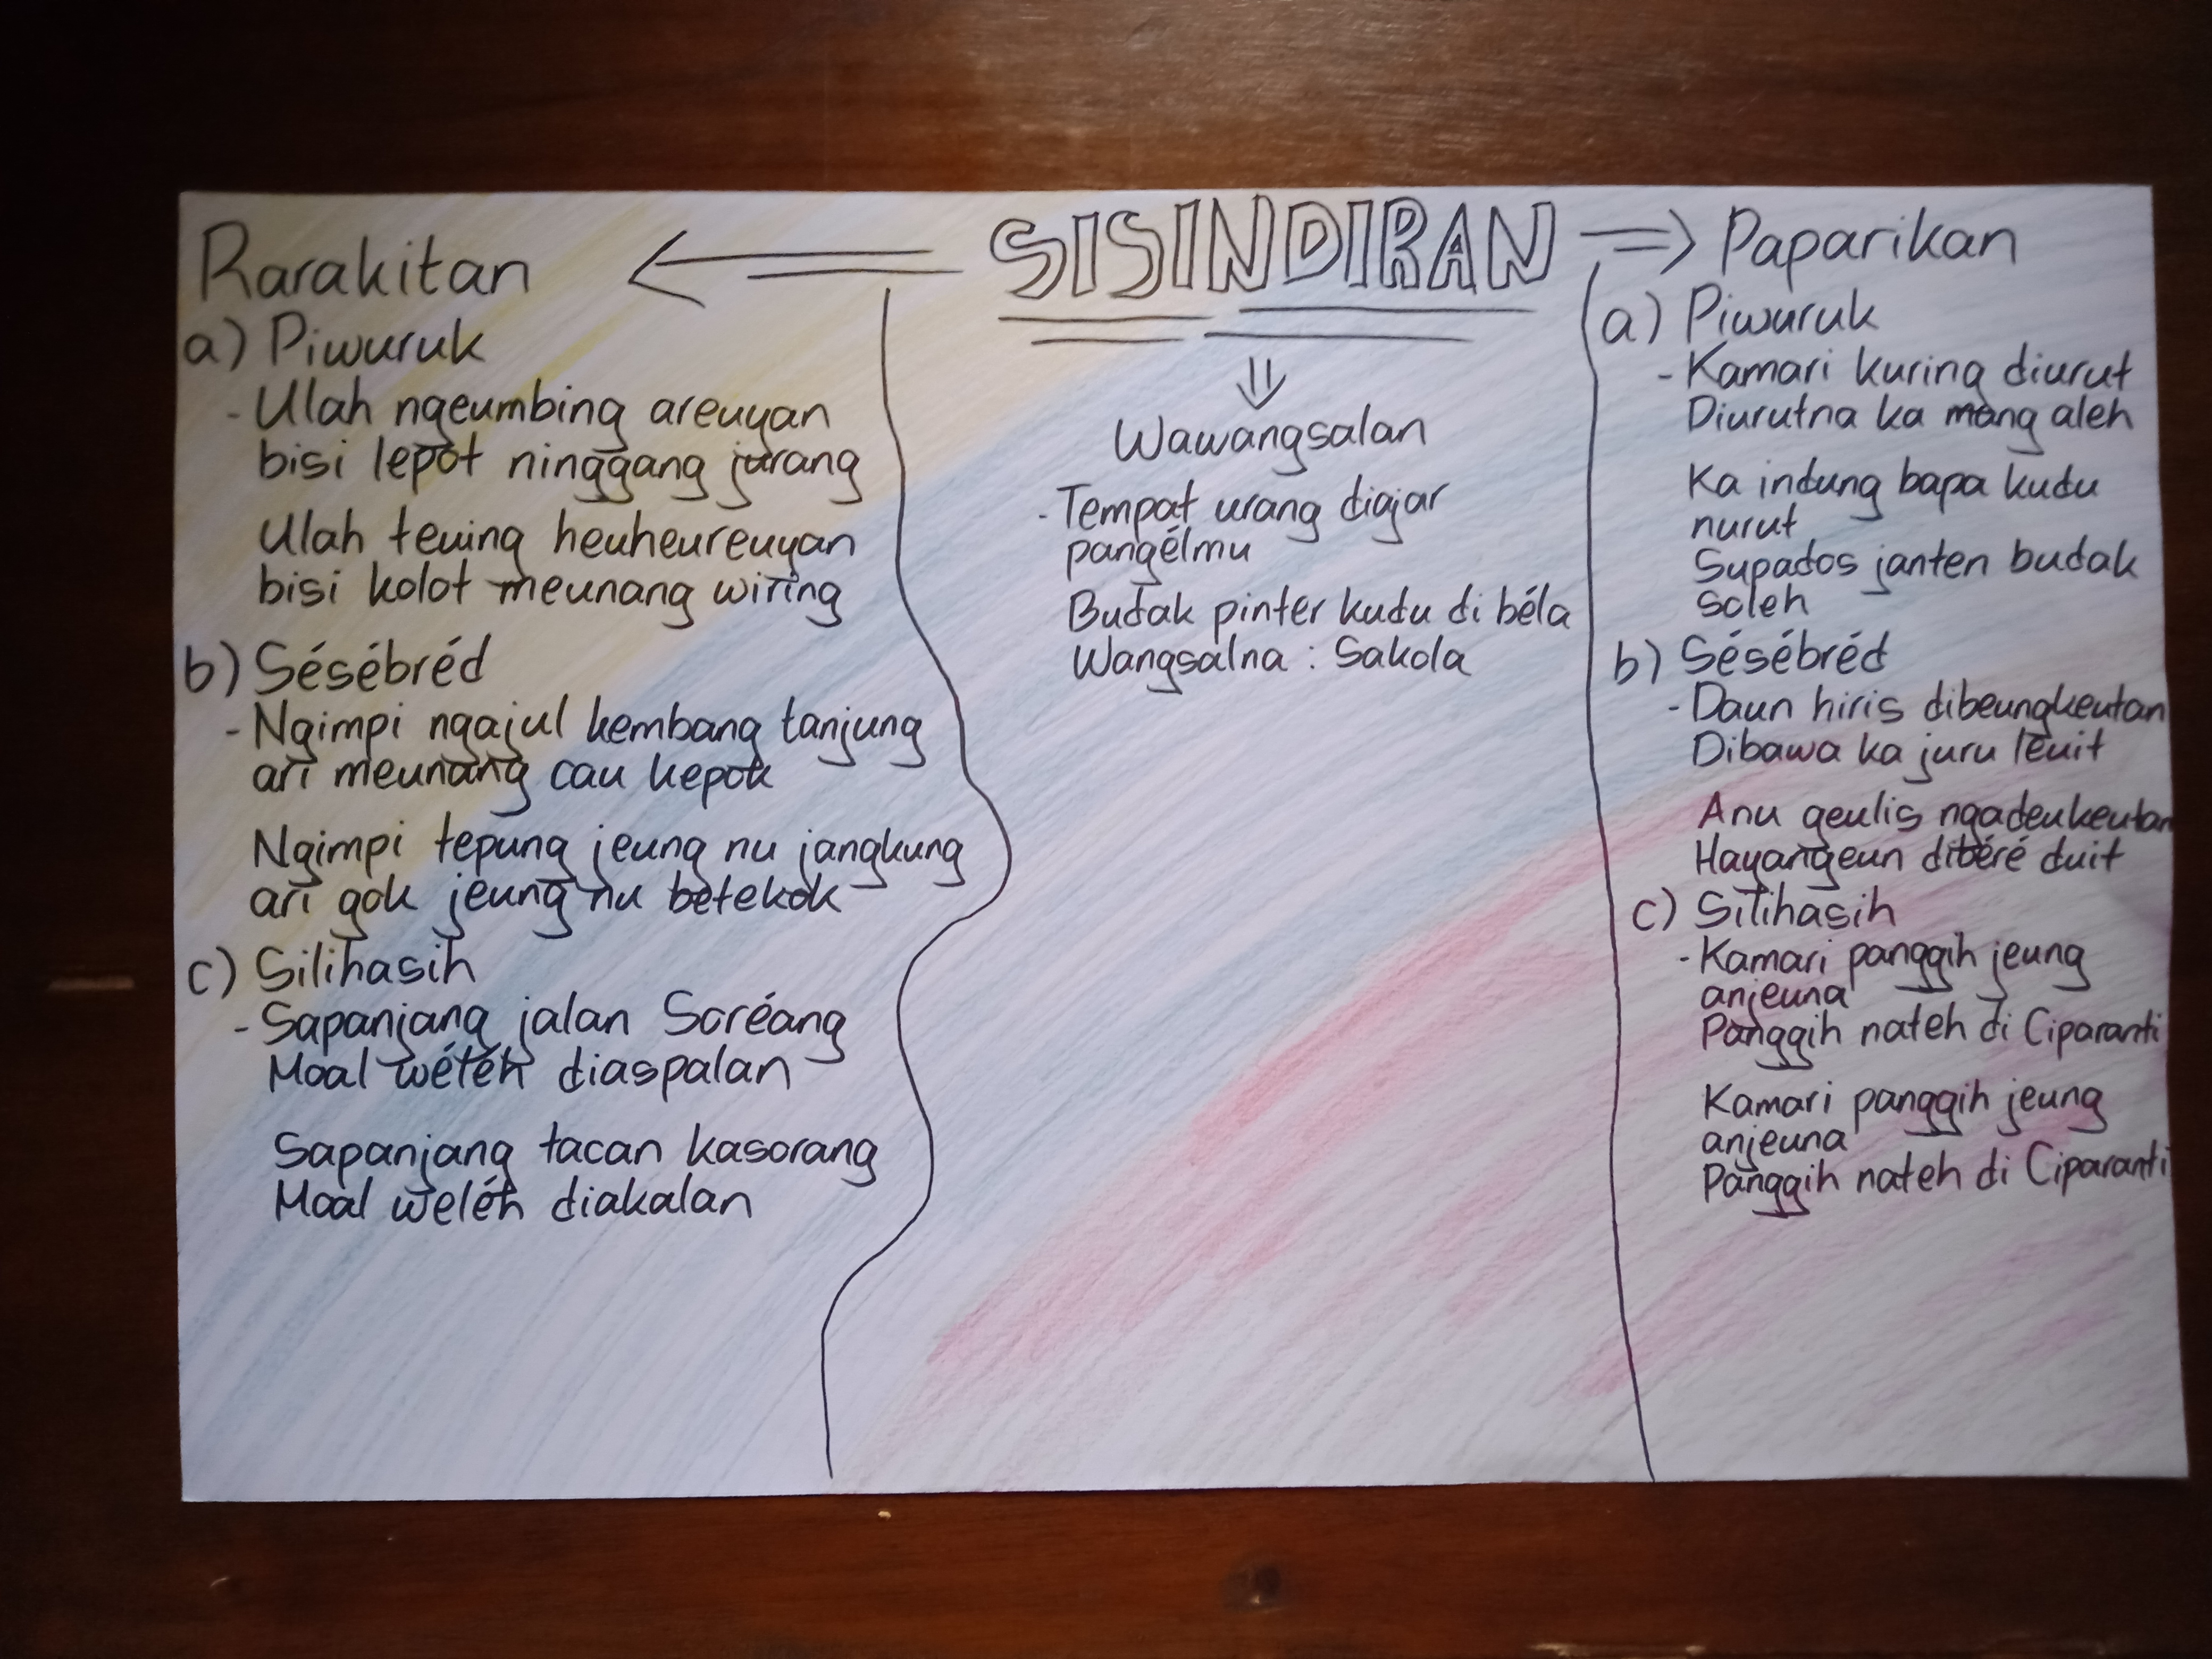 SISINDIRAN
Rarakitan
a) Piwuruk
- Ulah ngeumbing areuyan
bisi lepot ninggang jurang
Ulah teuing heuheureuyan
bisi kolot meunang wiring
b) Sésébréd
- Ngimpi ngajul kembang tanjung
ari meunang cau kepok
Ngimpi tepung jeung nu jangkung
ari gok jeung nu betekok
c) Silihasih
- Sapanjang jalan Soréang
Moal wéléh diaspalan
Sapanjang tacan kasorang
Moal weléh diakalan
Wawangsalan
- Tempat urang diajar
pangélmu
Budak pinter kudu di béla
Wangsalna : Sakola
Paparikan
a) Piwuruk
- Kamari kuring diurut
Diurutna ka mang aleh
Ka indung bapa kudu
nurut
Supados janten budak
soleh
b) Sésébréd
- Daun hiris dibeungkeutan
Dibawa ka juru leuit
Anu geulis ngadeukeutan
Hayangeun dibéré duit
c) Silihasih
- Kamari panggih jeung
anjeuna
Panggih nateh di Ciparanti
Kamari panggih jeung
anjeuna
Panggih nateh di Ciparanti